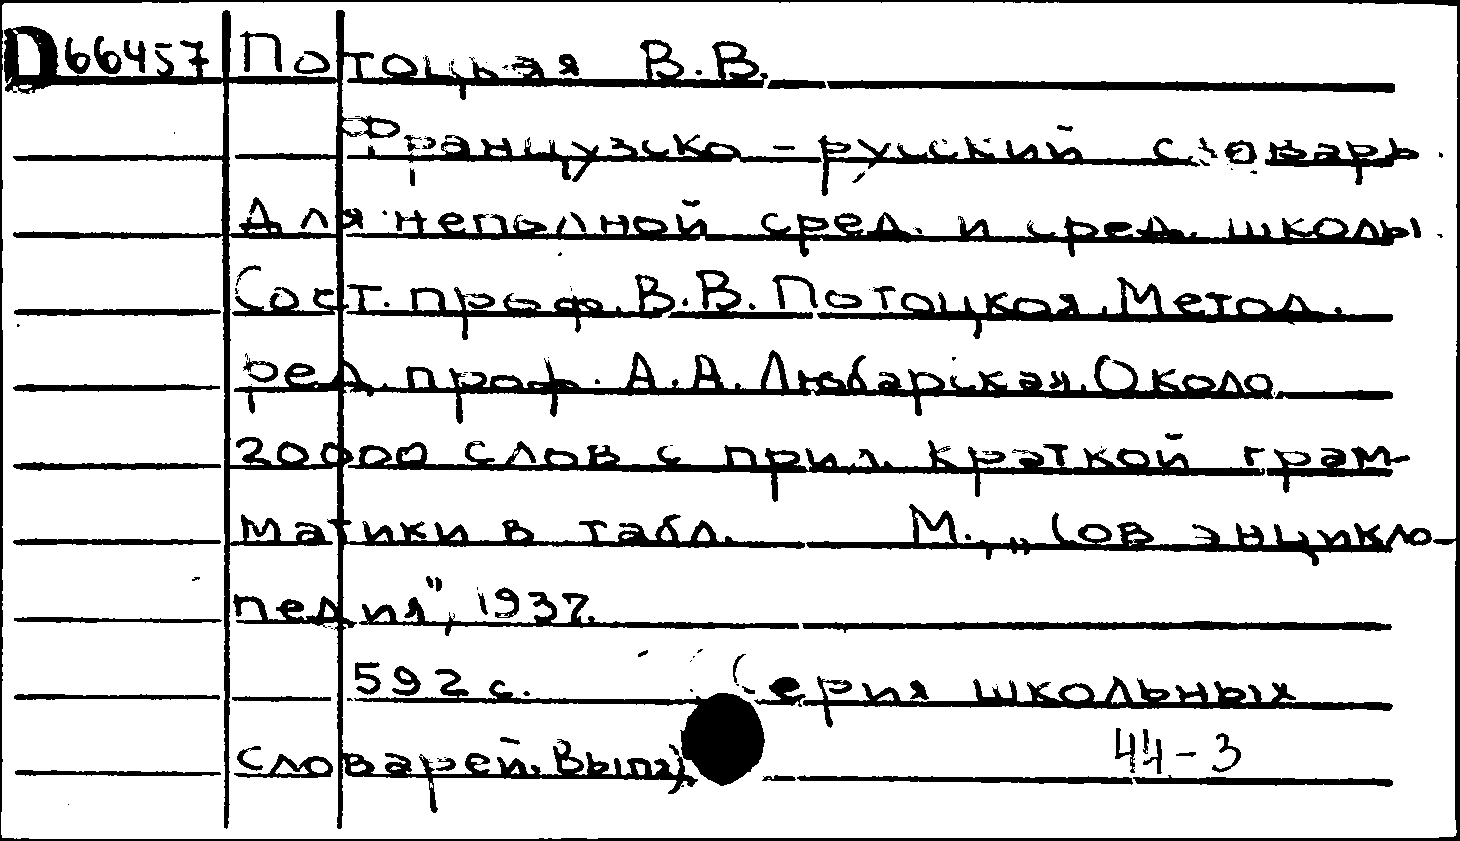 D 66457 Потоцкая В.В.
Французско-русский словарь
для неполной сред. и сред. школы.
Сост. проф. В.В. Потоцкая. Метод.
ред. проф. А.А. Любарская. Около
20000 слов с прил. краткой грам-
матики в табл. М., „Сов энцикло-
педия", 1937.
592 с. (Серия школьных
словарей. Вып2)
44-3